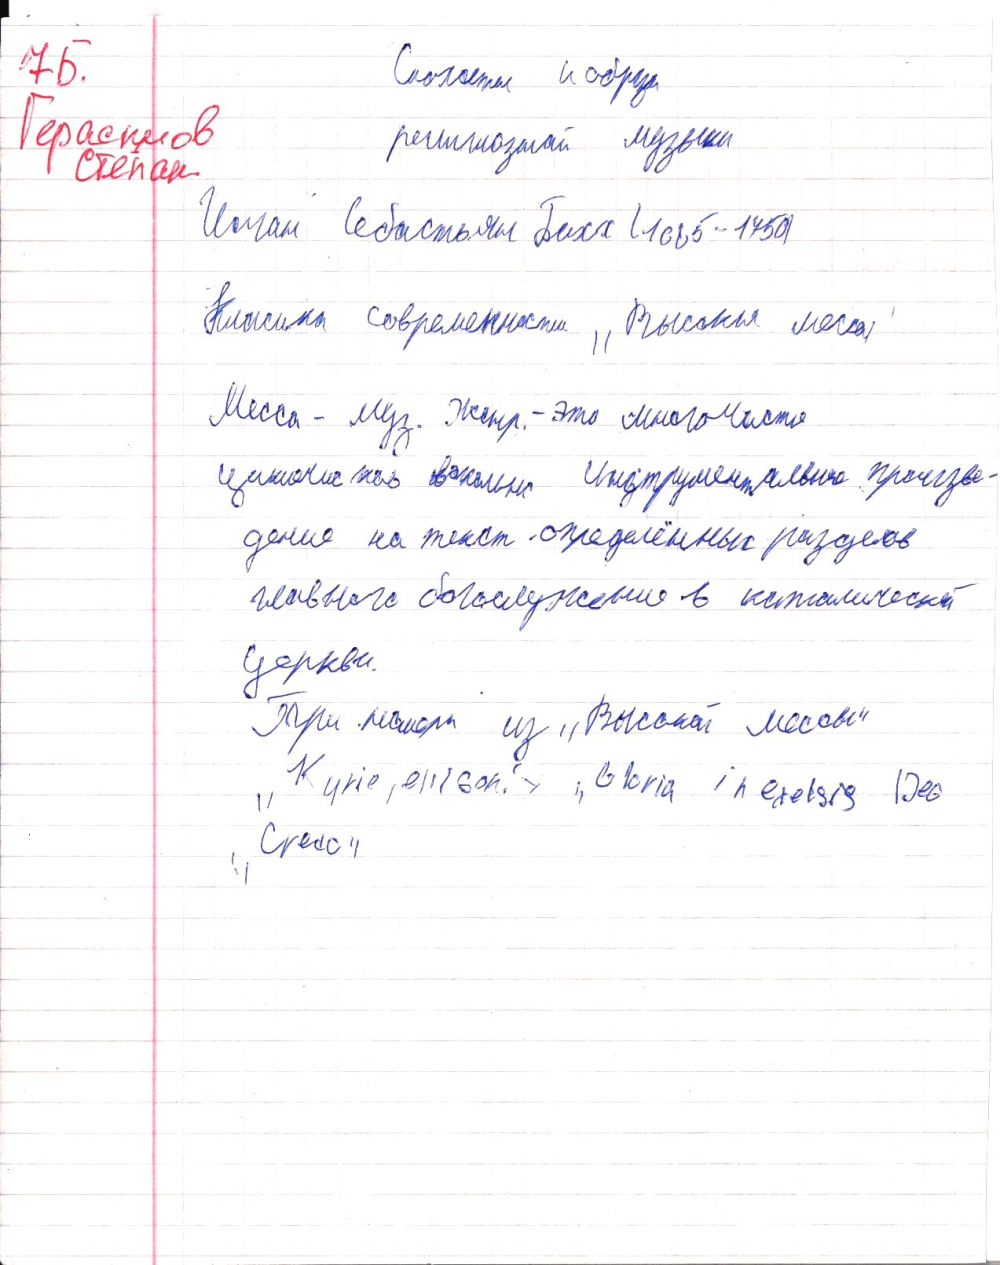 7Б.
Герасимов
Степан
и образы
религиозной музыки
Иоган Себастьян Бахх (1685-1750)
Класика современности „Высокая месса"
Месса - муз. Жанр. - это многочастно
вокально инструментально произве-
дение на текст определённых разделов
главного богослужение в католической
церкви.
Три номера из „Высокой мессы"
„Kyrie, eleison!" „Gloria in exelsis Deo
„Credo"